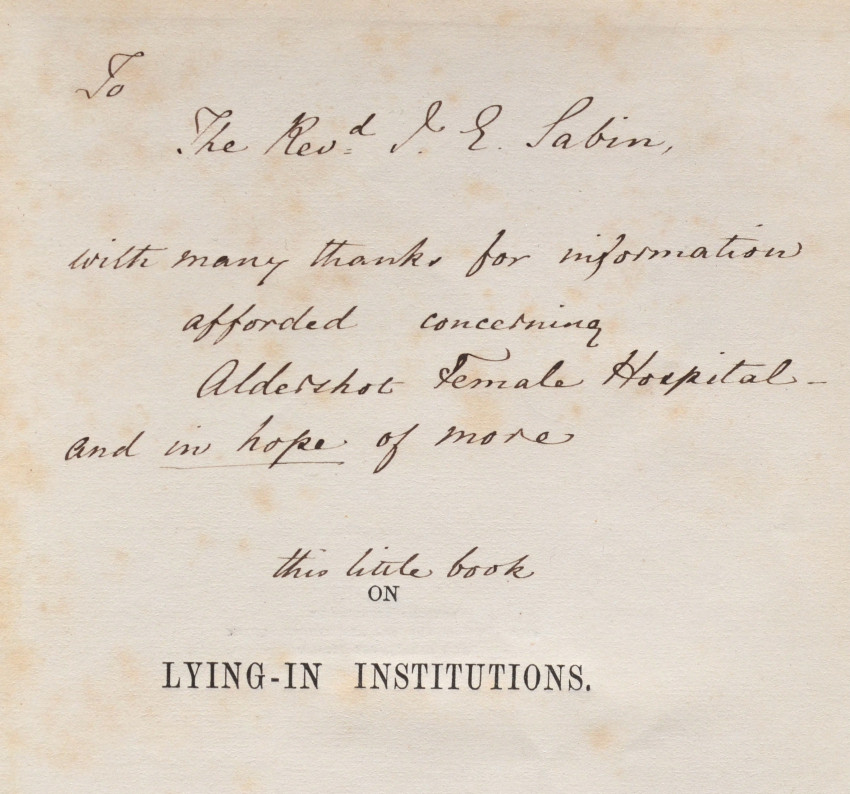 To
The Revd J. E. Sabin,
with many thanks for information
afforded concerning
Aldershot Female Hospital -
and in hope of more
this little book
ON
LYING-IN INSTITUTIONS.